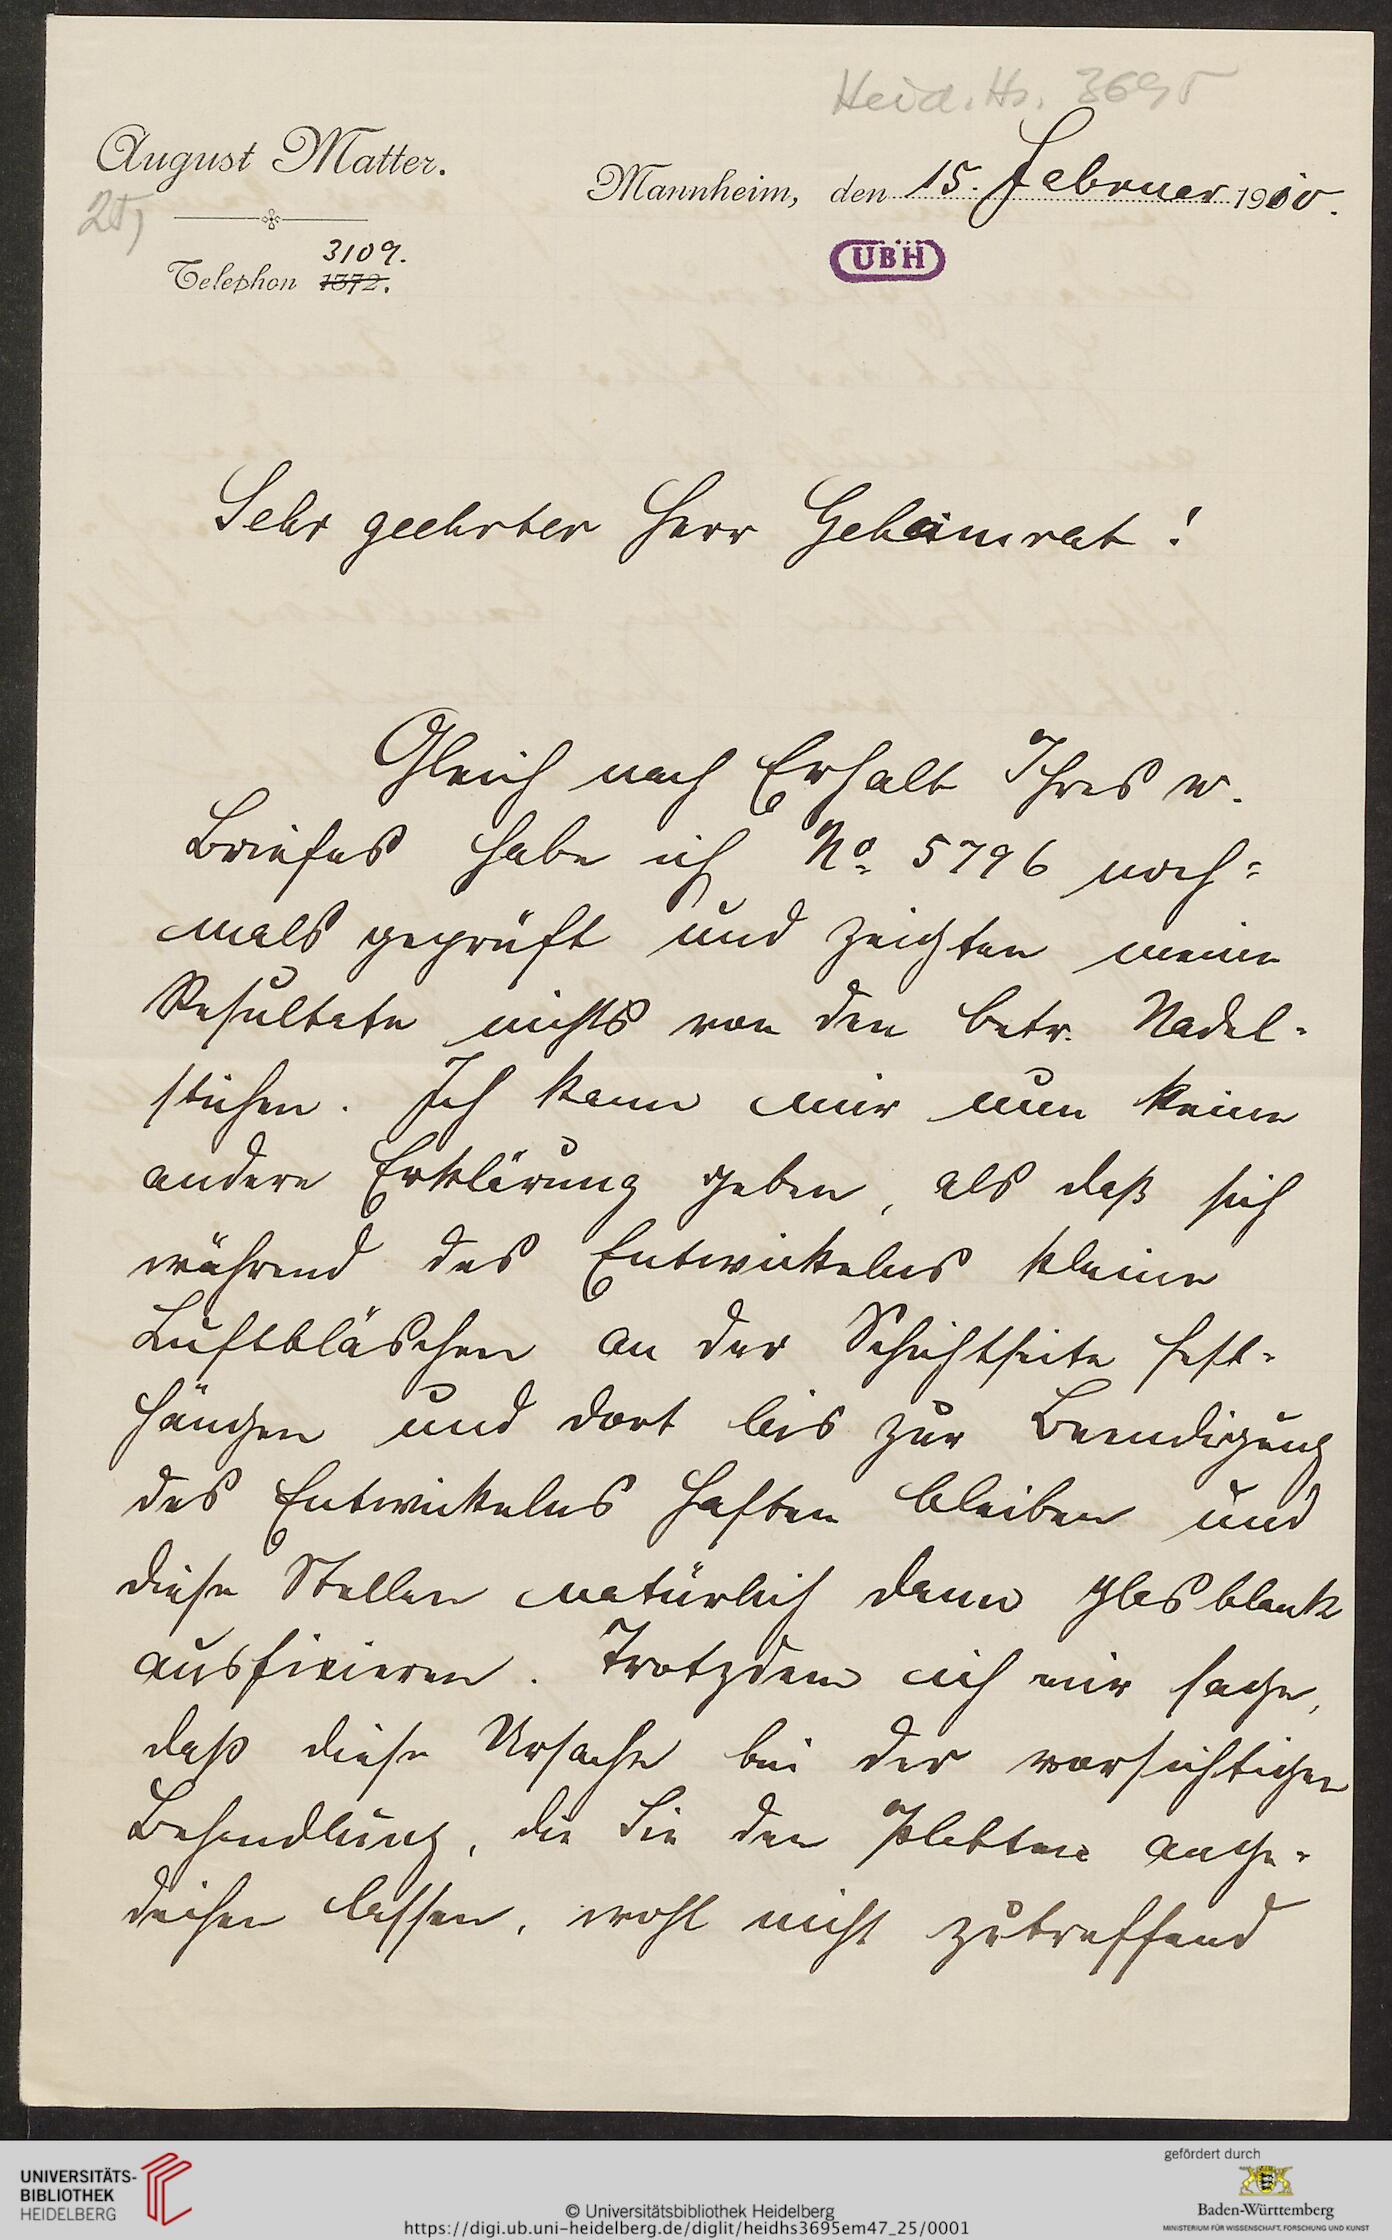 Heid. Hs. 3695
August Matter.
Mannheim, den 15. Februar 1910.
25,
3109.
Telephon 1372.
UBH
Sehr geehrter Herr Geheimrat!
Gleich nach Erhalt Ihres w.
Briefes habe ich No. 5796 noch=
mals geprüft und zeigten meine
Resultate nichts von den betr. Nadel-
stichen. Ich kann mir nun keine
andere Erklärung geben, als daß sich
während des Entwickelns kleine
Luftbläschen an der Schichtseite fest-
hängen und dort bis zur Beendigung
des Entwickelns haften bleiben und
diese Stellen natürlich dann glasblank
ausfixieren. Trotzdem ich mir sage,
daß diese Ursache bei der vorsichtigen
Behandlung, die Sie den Platten ange-
deihen lassen, wohl nicht zutreffend
UNIVERSITÄTS-
BIBLIOTHEK
HEIDELBERG
© Universitätsbibliothek Heidelberg
https://digi.ub.uni-heidelberg.de/diglit/heidhs3695em47_25/0001
gefördert durch
Baden-Württemberg
MINISTERIUM FÜR WISSENSCHAFT, FORSCHUNG UND KUNST